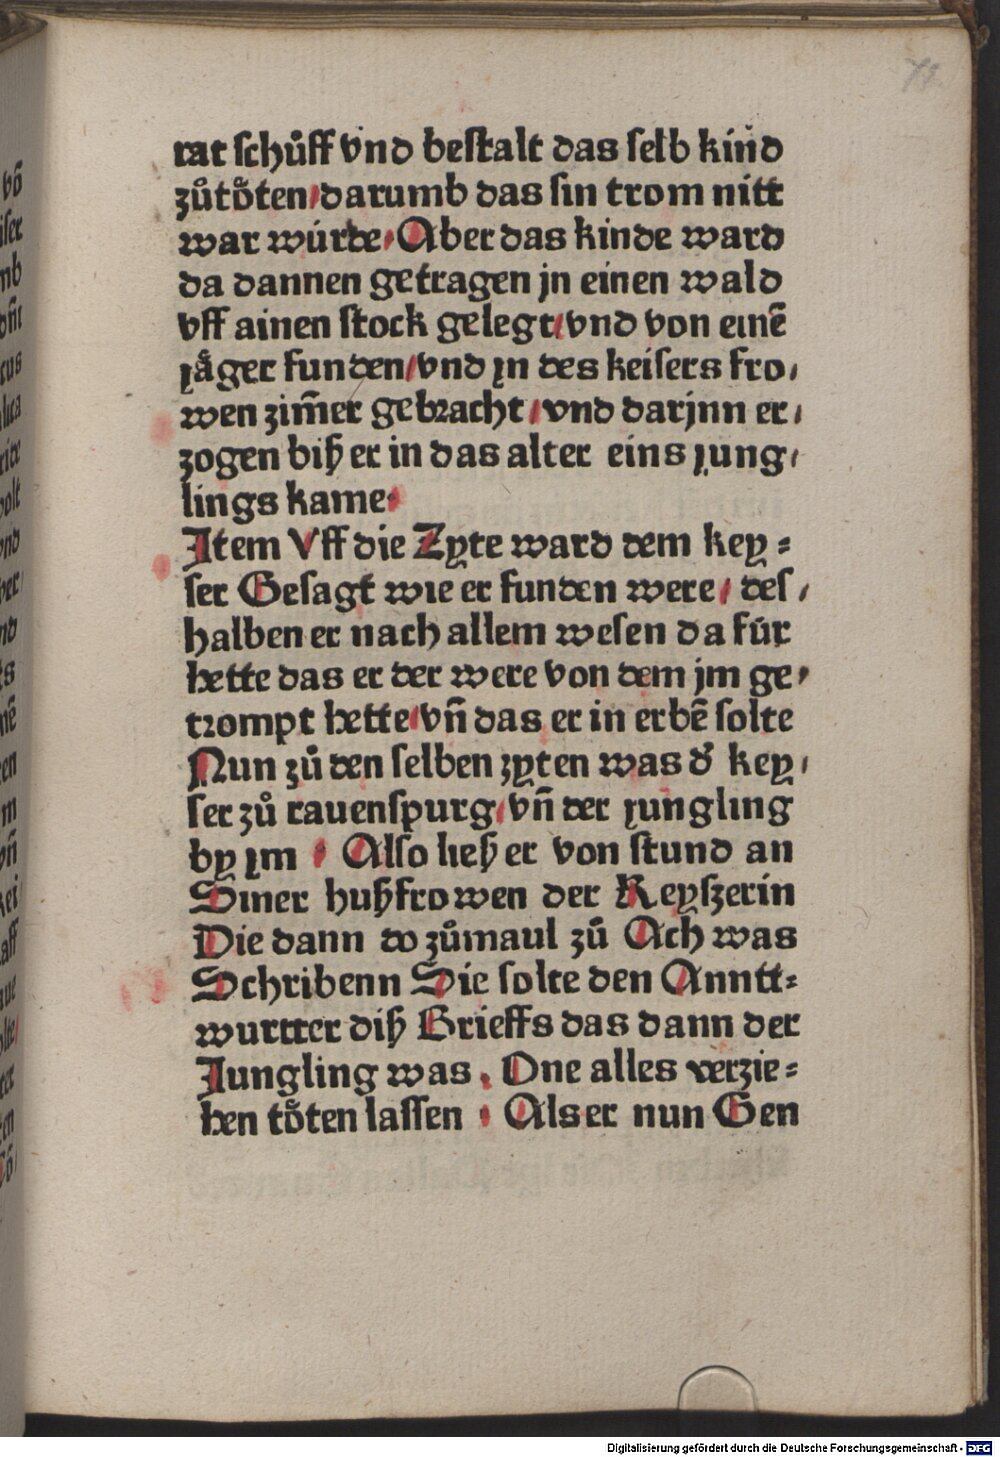 71
rat schůff vnd bestalt das selb kind
zůto̊ten/darumb das sin trom nitt
war wúrde/Aber das kinde ward
da dannen getragen jn einen wald
vff ainen stock gelegt/vnd von einē
ȷa̋ger funden/vnd ȷn des keisers fro/
wen zim̄er gebꝛacht/vnd darjnn er/
zogen biß er in das alter eins ȷung/
lings kame·
Item Vff die Zyte ward dem key=
ser Gesagt wie er funden were/ des/
halben er nach allem wesen da fúr
hette das er der were von dem jm ge/
trompt hette/vn̄ das er in erbē solte
Nun zů den selben zyten was d̕ key/
ser zů rauenspurg/vn̄ der ȷungling
by ȷm · Also ließ er von stund an
Siner hußfrowen der Keyszerin
Die dann do zůmaul zů Ach was
Schribenn Sie solte den Anntt=
wurtter diß Brieffs das dann der
Jungling was. One alles verzie=
hen to̊ten lassen · Als er nun Gen
Digitalisierung gefördert durch die Deutsche Forschungsgemeinschaft - DFG